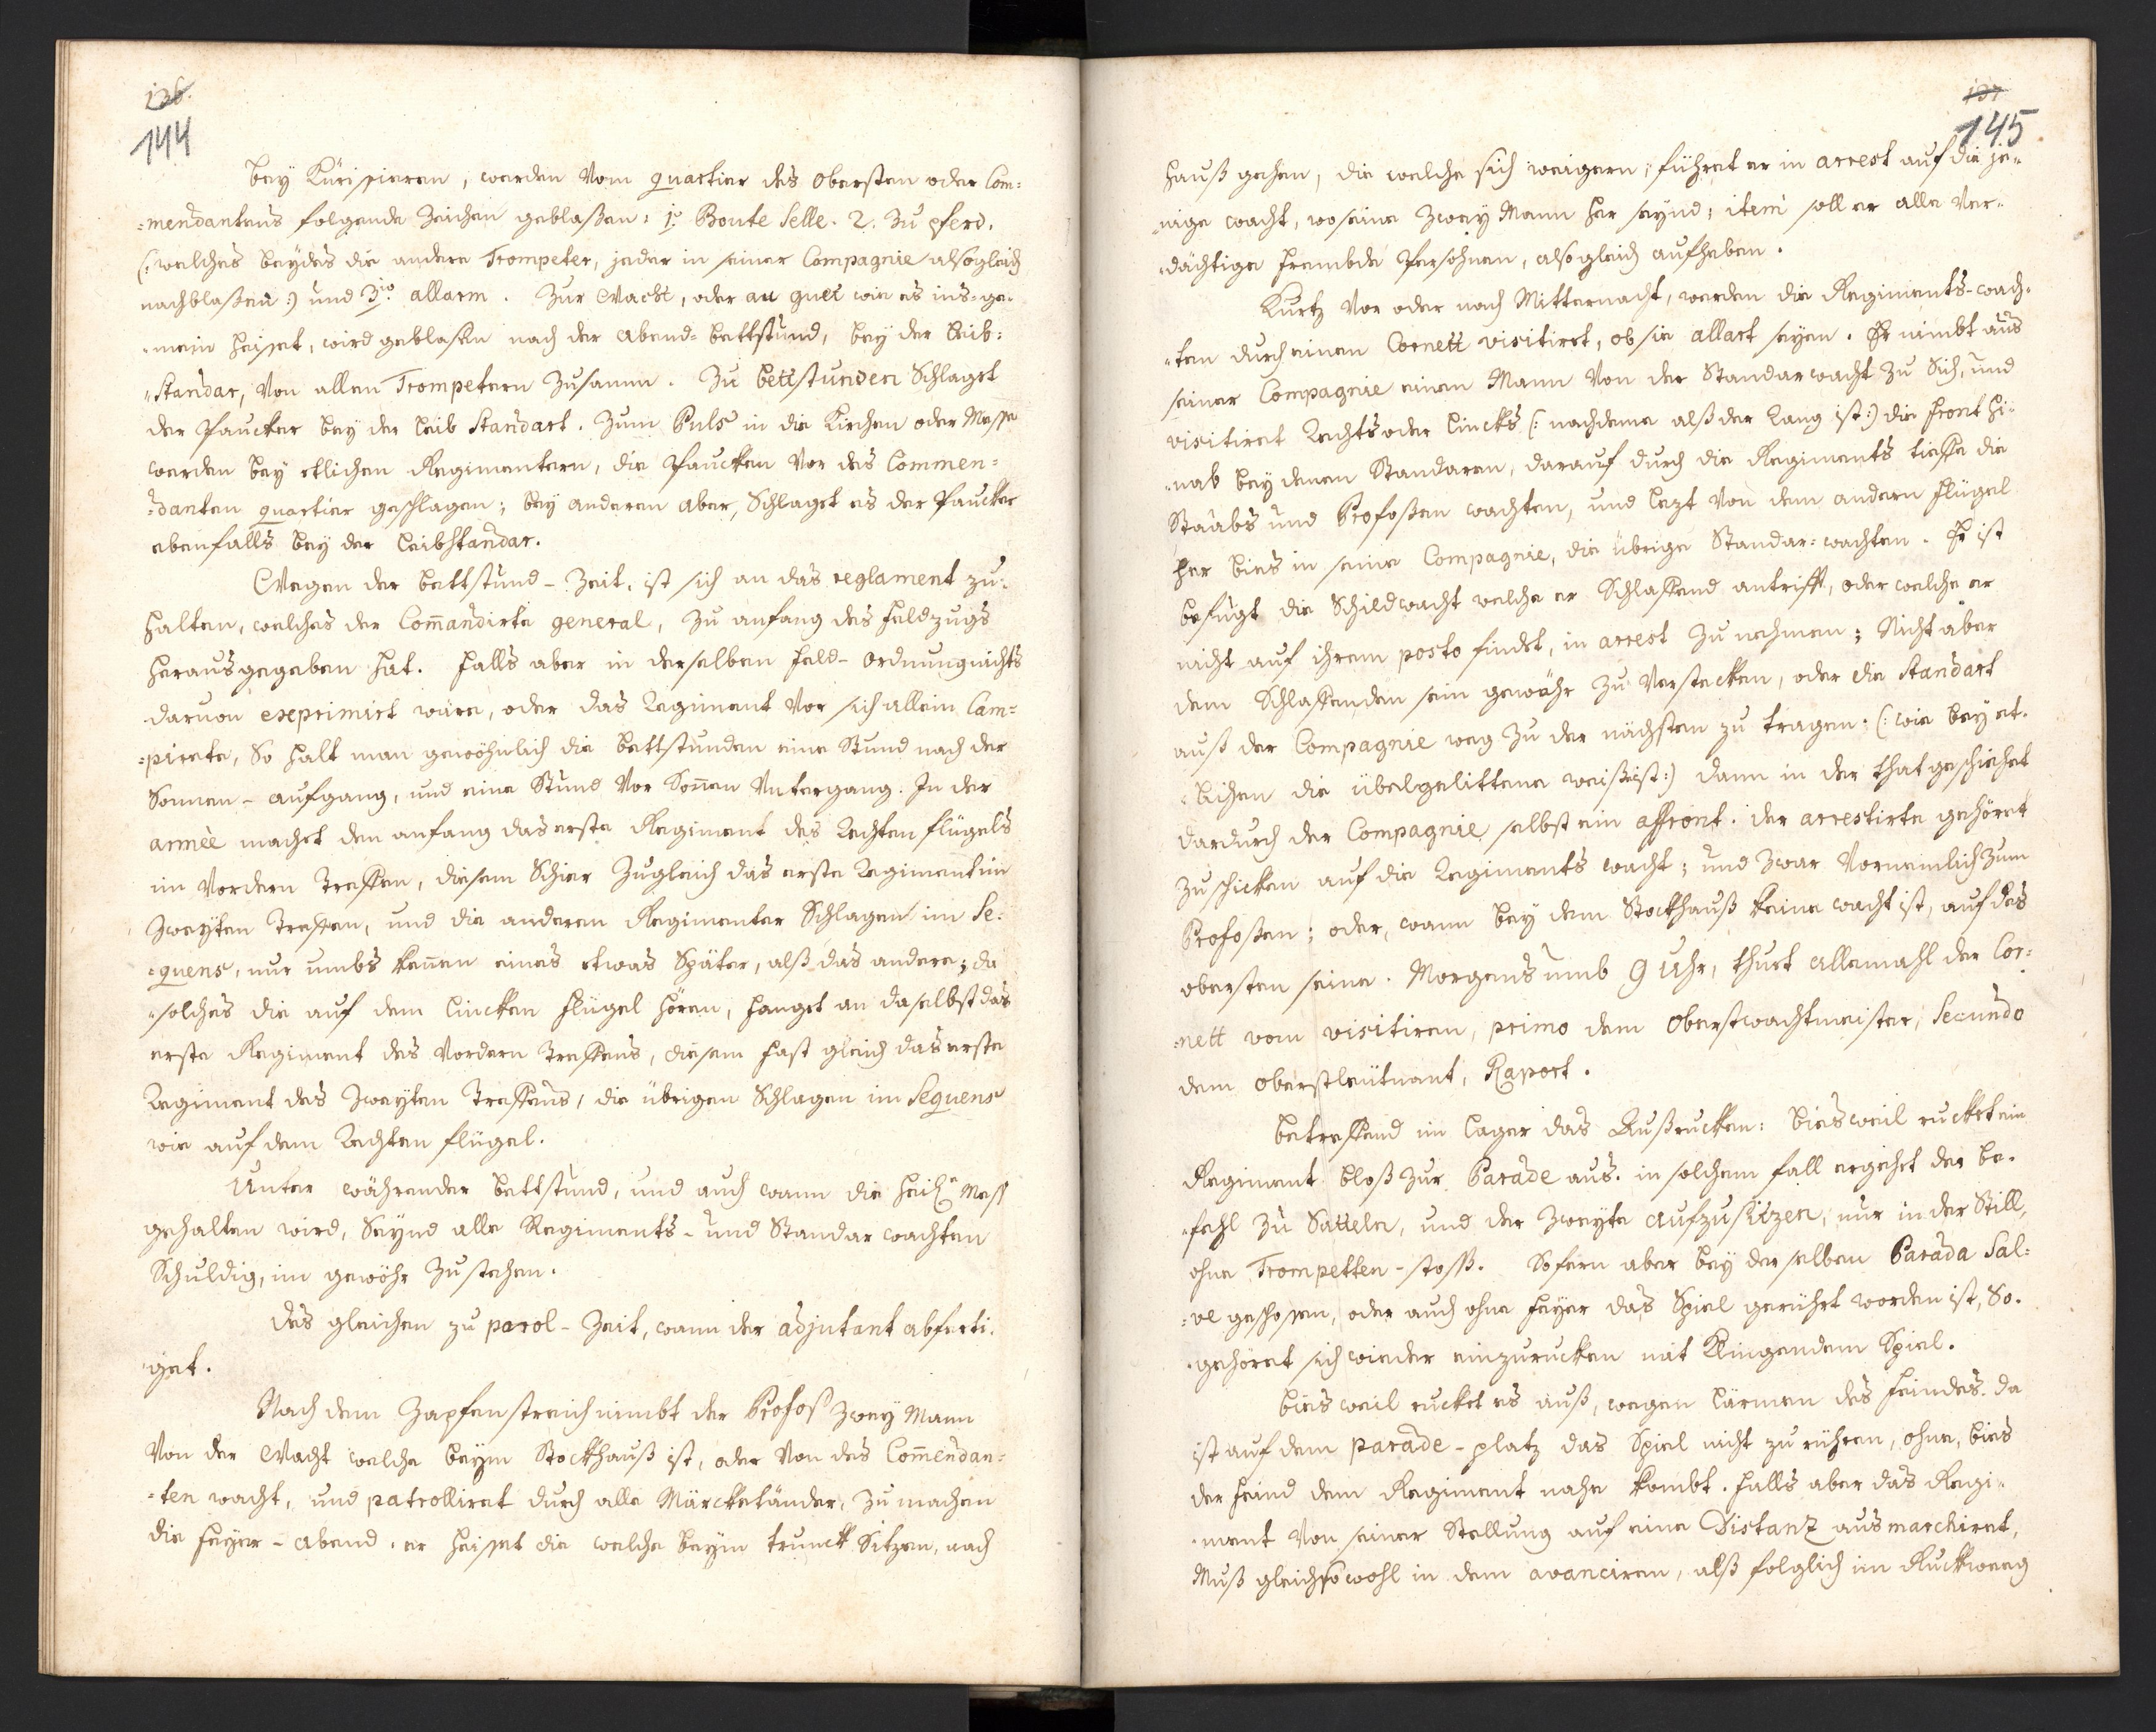 136.
144
bey Küriſieren, werden vom quartier des Obersten oder Com=
=mendantens folgende Zeichen geblaßen: 1.º Boute Selle. 2. Zu pferd.
(: welches beydes die andere Trompeter, jeder in seiner Compagnie alsogleich
nachblaßen :) und 3.io allarm. Zur Wacht, oder au guet wie es ins=ge=
=mein heisset, wird geblaßen nach der Abend=bettstund, bey der Leib=
=Standar, von allen Trompetern zusamm. Zu bettstunden Schlaget
der Paucker bey der Leib Standart. Zum Puls in die Kirchen oder Messe
werden bey etlichen Regimentern, die Paucken vor des Commen=
=danten quartier geschlagen; bey anderen aber, Schlaget es der Paucker
ebenfalls bey der Leibstandar.
Wegen der bettstund=Zeit, ist sich an das reglament zu=
halten, welches der Com̄andirte general, zu anfang des Feldzugs
herausgegeben hat. Falls aber in derselben Feld=Ordnung nichts
daruon exprimirt wäre, oder das Regiment vor sich allein Cam=
=pirete, So halt man gewöhnlich die bettstunden eine Stund nach der
Sonnen=aufgang, und eine Stund vor Soñen Untergang. In der
armèe machet den anfang das erste Regiment des Rechten flügels
im Vordern Treffen, diesem Schier Zugleich das erste Regiment im
Zweyten Treffen, und die anderen Regimenter Schlagen im Se=
=quens, nur umbs kennen eines etwas Später, alß das andere; da
solches die auf dem Lincken Flügel hören, fanget an daselbst das
erste Regiment des Vordern Treffens, diesem fast gleich das erste
Regiment des Zweyten Treffens, die übrigen Schlagen im Sequens
wie auf dem Rechten flügel.
Unter währender bettstund, und auch wann die Heil: Mess
gehalten wird, Seynd alle Regiments= und Standar wachten
Schuldig, im gewöhr zu stehen.
Des gleichen zu parol=Zeit, wann der adjutant abferti=
=get.
Nach dem Zapfenstreich nimbt der Profoß zwey Mann
Von der Wacht welche beym Stockhauß ist, oder Von des Com̄endan=
=ten wacht, und patrolliret durch alle Märcketänder, zu machen
die Feyer=abend. er heisset die welche beym trunck Sitzen, nach
137
145
Hauß gehen, die welche sich weigern, führet er in arrest auf die je=
=nige wacht, wo seine zwey Mann her seynd; item soll er alle Ver=
=dächtige Frembde Persohnen, alsogleich aufheben.
Kurtz vor oder nach Mitternacht, werden die Regiments=wach=
=ten durch einen Cornett visitirt, ob sie allart seyen. Er nimbt aus
seiner Compagnie einen Mann von der Standarwacht zu Sich, und
visitiret Rechts oder Lincks (: nachdeme alß der Rang ist :) die Front hi=
=nab bey denen Standaren, darauf durch die Regiments tieffe die
Staabs und Profoßen wachten, und lezt von dem andern Flügel
her bies in seine Compagnie, die übrige Standar=wachten. Er ist
befugt die Schildwacht welche er Schlaffend antrifft, oder welche er
nicht auf ihrem posto findet, in arrest zu nehmen; Nicht aber
dem Schlaffenden sein gewöhr zu verstecken, oder die Standart
auß der Compagnie weg zu der nächsten zu tragen. (: wie bey et=
=lichen die übelgelittene weiß ist :) dann in der that geschiehet
dardurch der Compagnie selbst ein affront. der arrestirte gehöret
zuschicken auf die Regiments wacht; und zwar Vornemlich zum
Profoßen; oder, wann bey dem Stockhauß keine wacht ist, auf des
obersten seine. Morgens umb 9 Uhr, thuet allemahl der Cor=
=nett vom visitiren, primo dem Oberstwachtmeister, Secundo
dem Oberstleütnant, Raport.
Betreffend im Lager das Außrucken: biesweil rucket ein
Regiment bloß zur Parade aus. in solchem fall ergehet der be=
=fehl zu Satteln, und der zweyte aufzusitzen, nur in der Still,
ohne Trompetten=stoß. Sofern aber bey derselben Parada Sal=
=ve geschossen, oder auch ohne Feyer das Spiel gerührt worden ist, So=
=gehöret sich wieder einzurucken mit klingendem Spiel.
Biesweil rucket es auß, wegen Lärmen des Feindes. da
ist auf dem parade=platz das Spiel nicht zu rühren, ohne, bies
der Feind dem Regiment nahe kombt. Falls aber das Regi=
=ment von seiner Stellung auf eine Distanz aus marchiret,
Muß gleichsowohl in dem avanciren, alß folglich im Ruckweeg